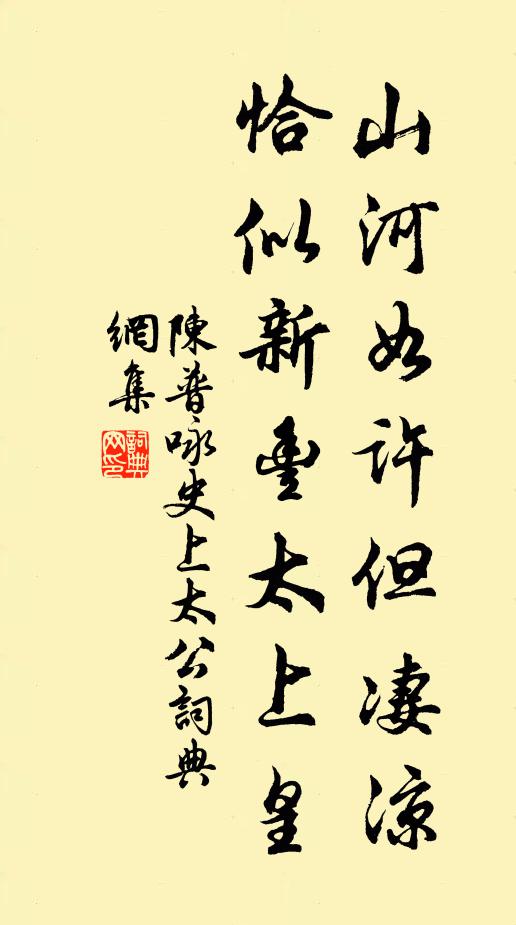 山河如許但凄涼
恰似新豐太上皇
陳普咏史上太公詞典
網集
詞典網印